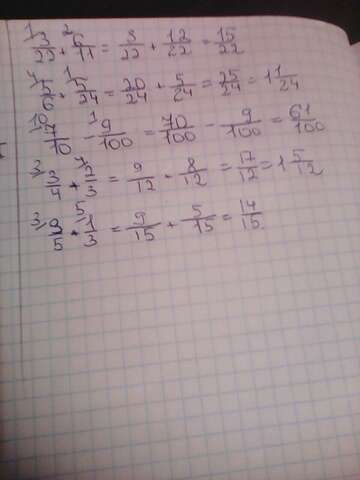 3/22 + 6/11 = 3/22 + 12/22 = 15/22
5/6 + 5/24 = 20/24 + 5/24 = 25/24 = 1 1/24
7/10 - 9/100 = 70/100 - 9/100 = 61/100
3/4 + 2/3 = 9/12 + 8/12 = 17/12 = 1 5/12
3/5 + 1/3 = 9/15 + 5/15 = 14/15